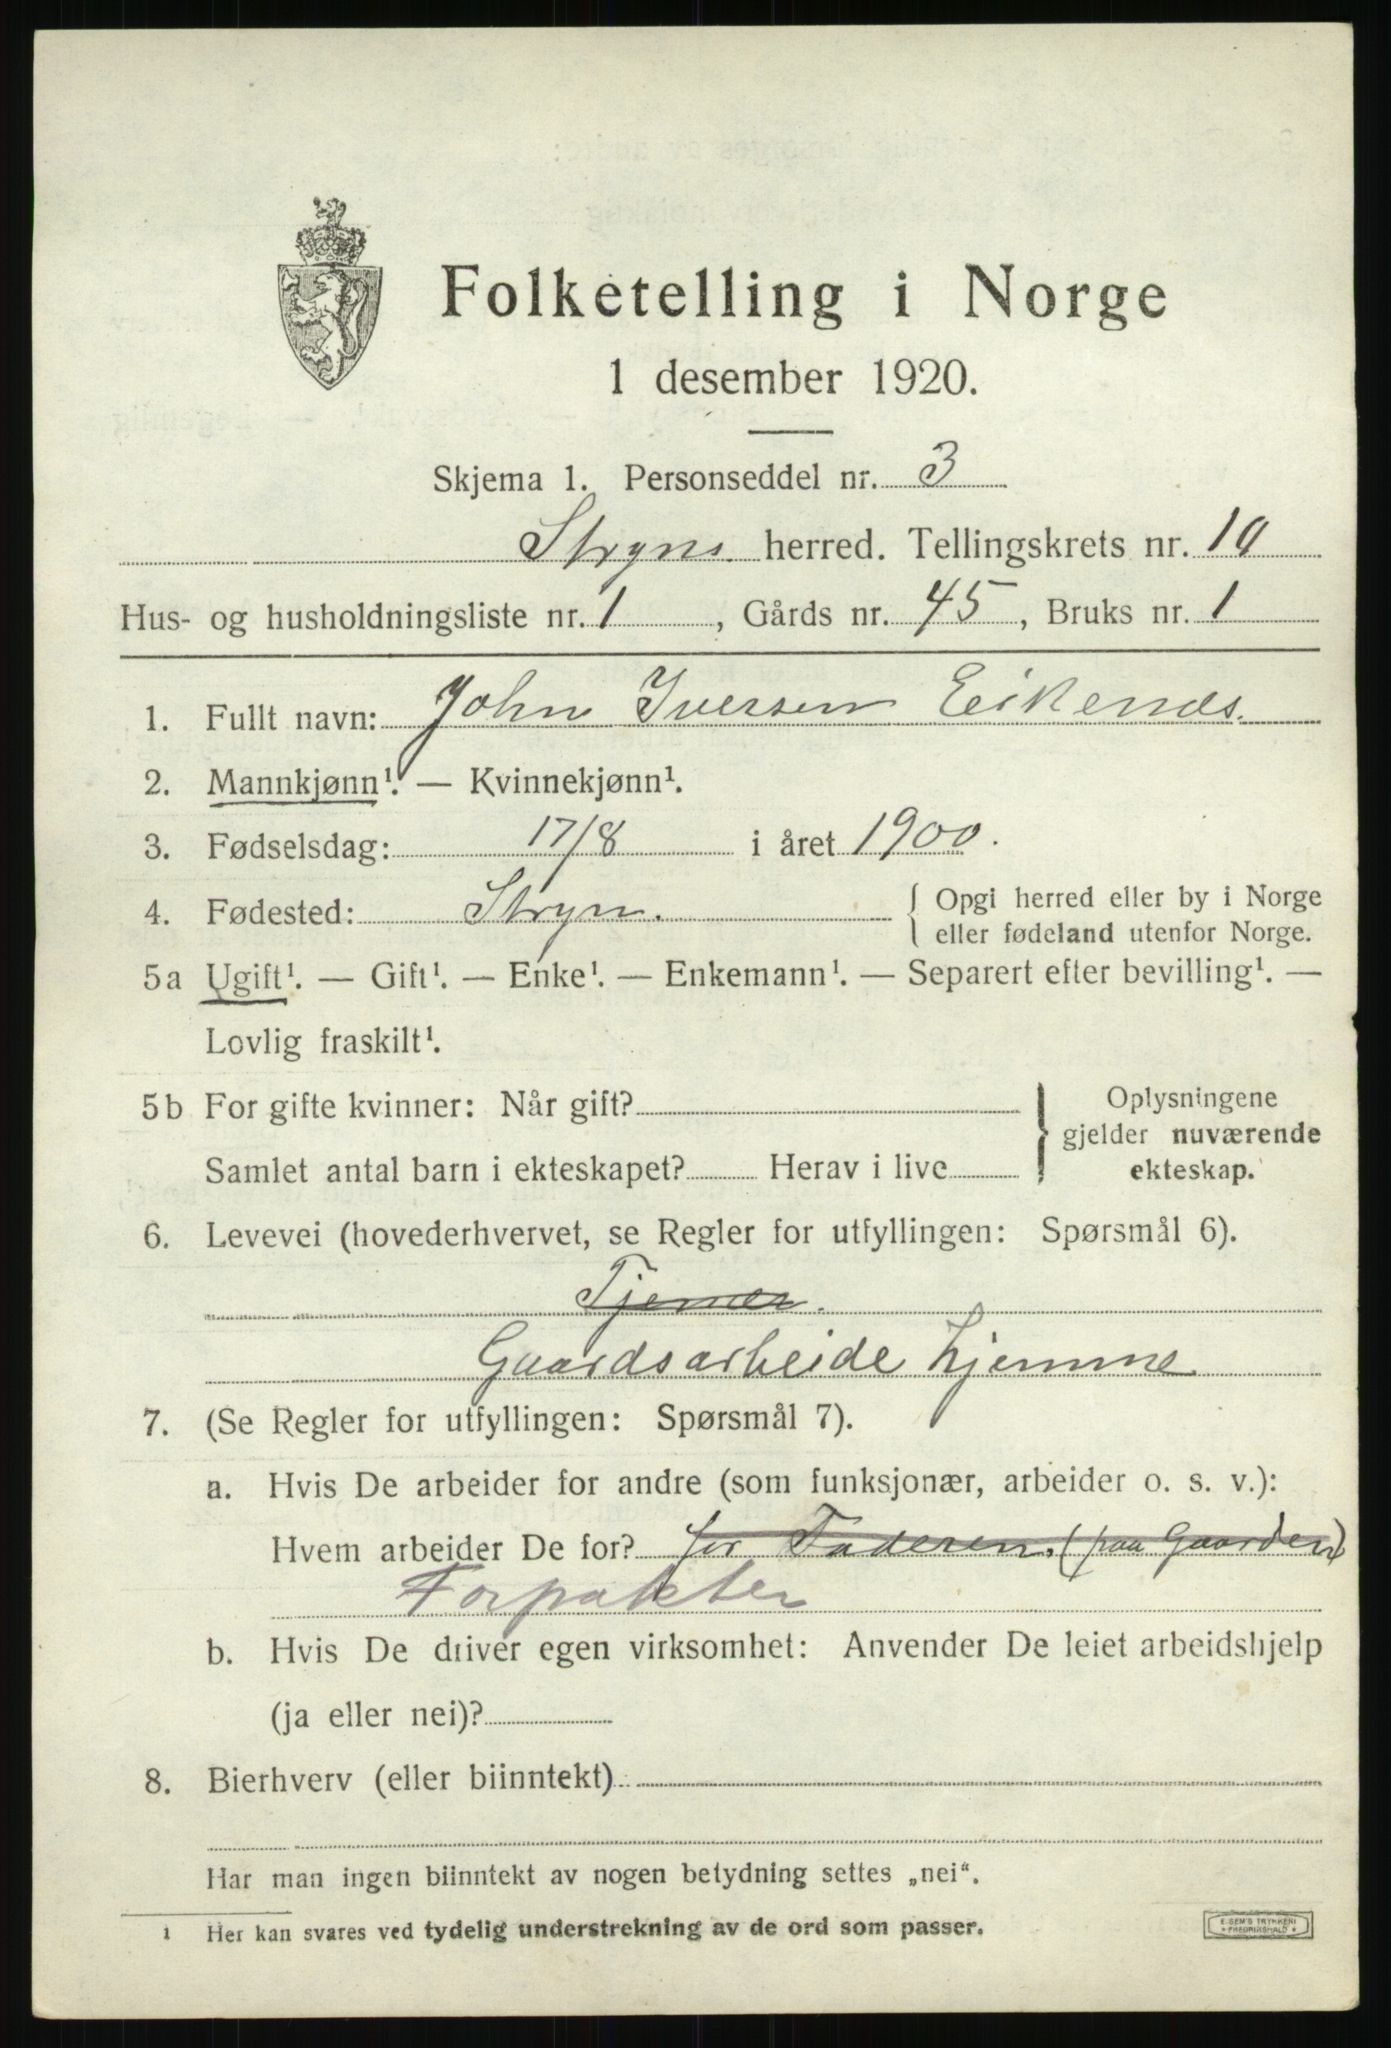 Folketelling i Norge
1 desember 1920.
Skjema 1. Personseddel nr. 3
Stryns herred. Tellingskrets nr. 10
Hus- og husholdningsliste nr. 1, Gårds nr. 45, Bruks nr. 1
1. Fullt navn: John Iversen Eikenæs.
2. Mannkjønn¹. — Kvinnekjønn¹.
3. Fødselsdag: 17/8 i året 1900.
4. Fødested: Stryn. { Opgi herred eller by i Norge
eller fødeland utenfor Norge.
5a Ugift¹. — Gift¹. — Enke¹. — Enkemann¹. — Separert efter bevilling¹. —
Lovlig fraskilt¹.
5b For gifte kvinner: Når gift?
Samlet antal barn i ekteskapet? Herav i live
} Oplysningene
gjelder nuværende
ekteskap.
6. Levevei (hovederhvervet, se Regler for utfyllingen: Spørsmål 6).
Tjener.
Gaardsarbeide hjemme
7. (Se Regler for utfyllingen: Spørsmål 7).
a. Hvis De arbeider for andre (som funksjonær, arbeider o. s. v.):
Hvem arbeider De for? for Faderen. (paa Gaarden)
Forpakter
b. Hvis De driver egen virksomhet: Anvender De leiet arbeidshjelp
(ja eller nei)?
8. Bierhverv (eller biinntekt)
Har man ingen biinntekt av nogen betydning settes „nei“.
¹ Her kan svares ved tydelig understrekning av de ord som passer.
E. SEM'S TRYKKERI
FREDRIKSHALD